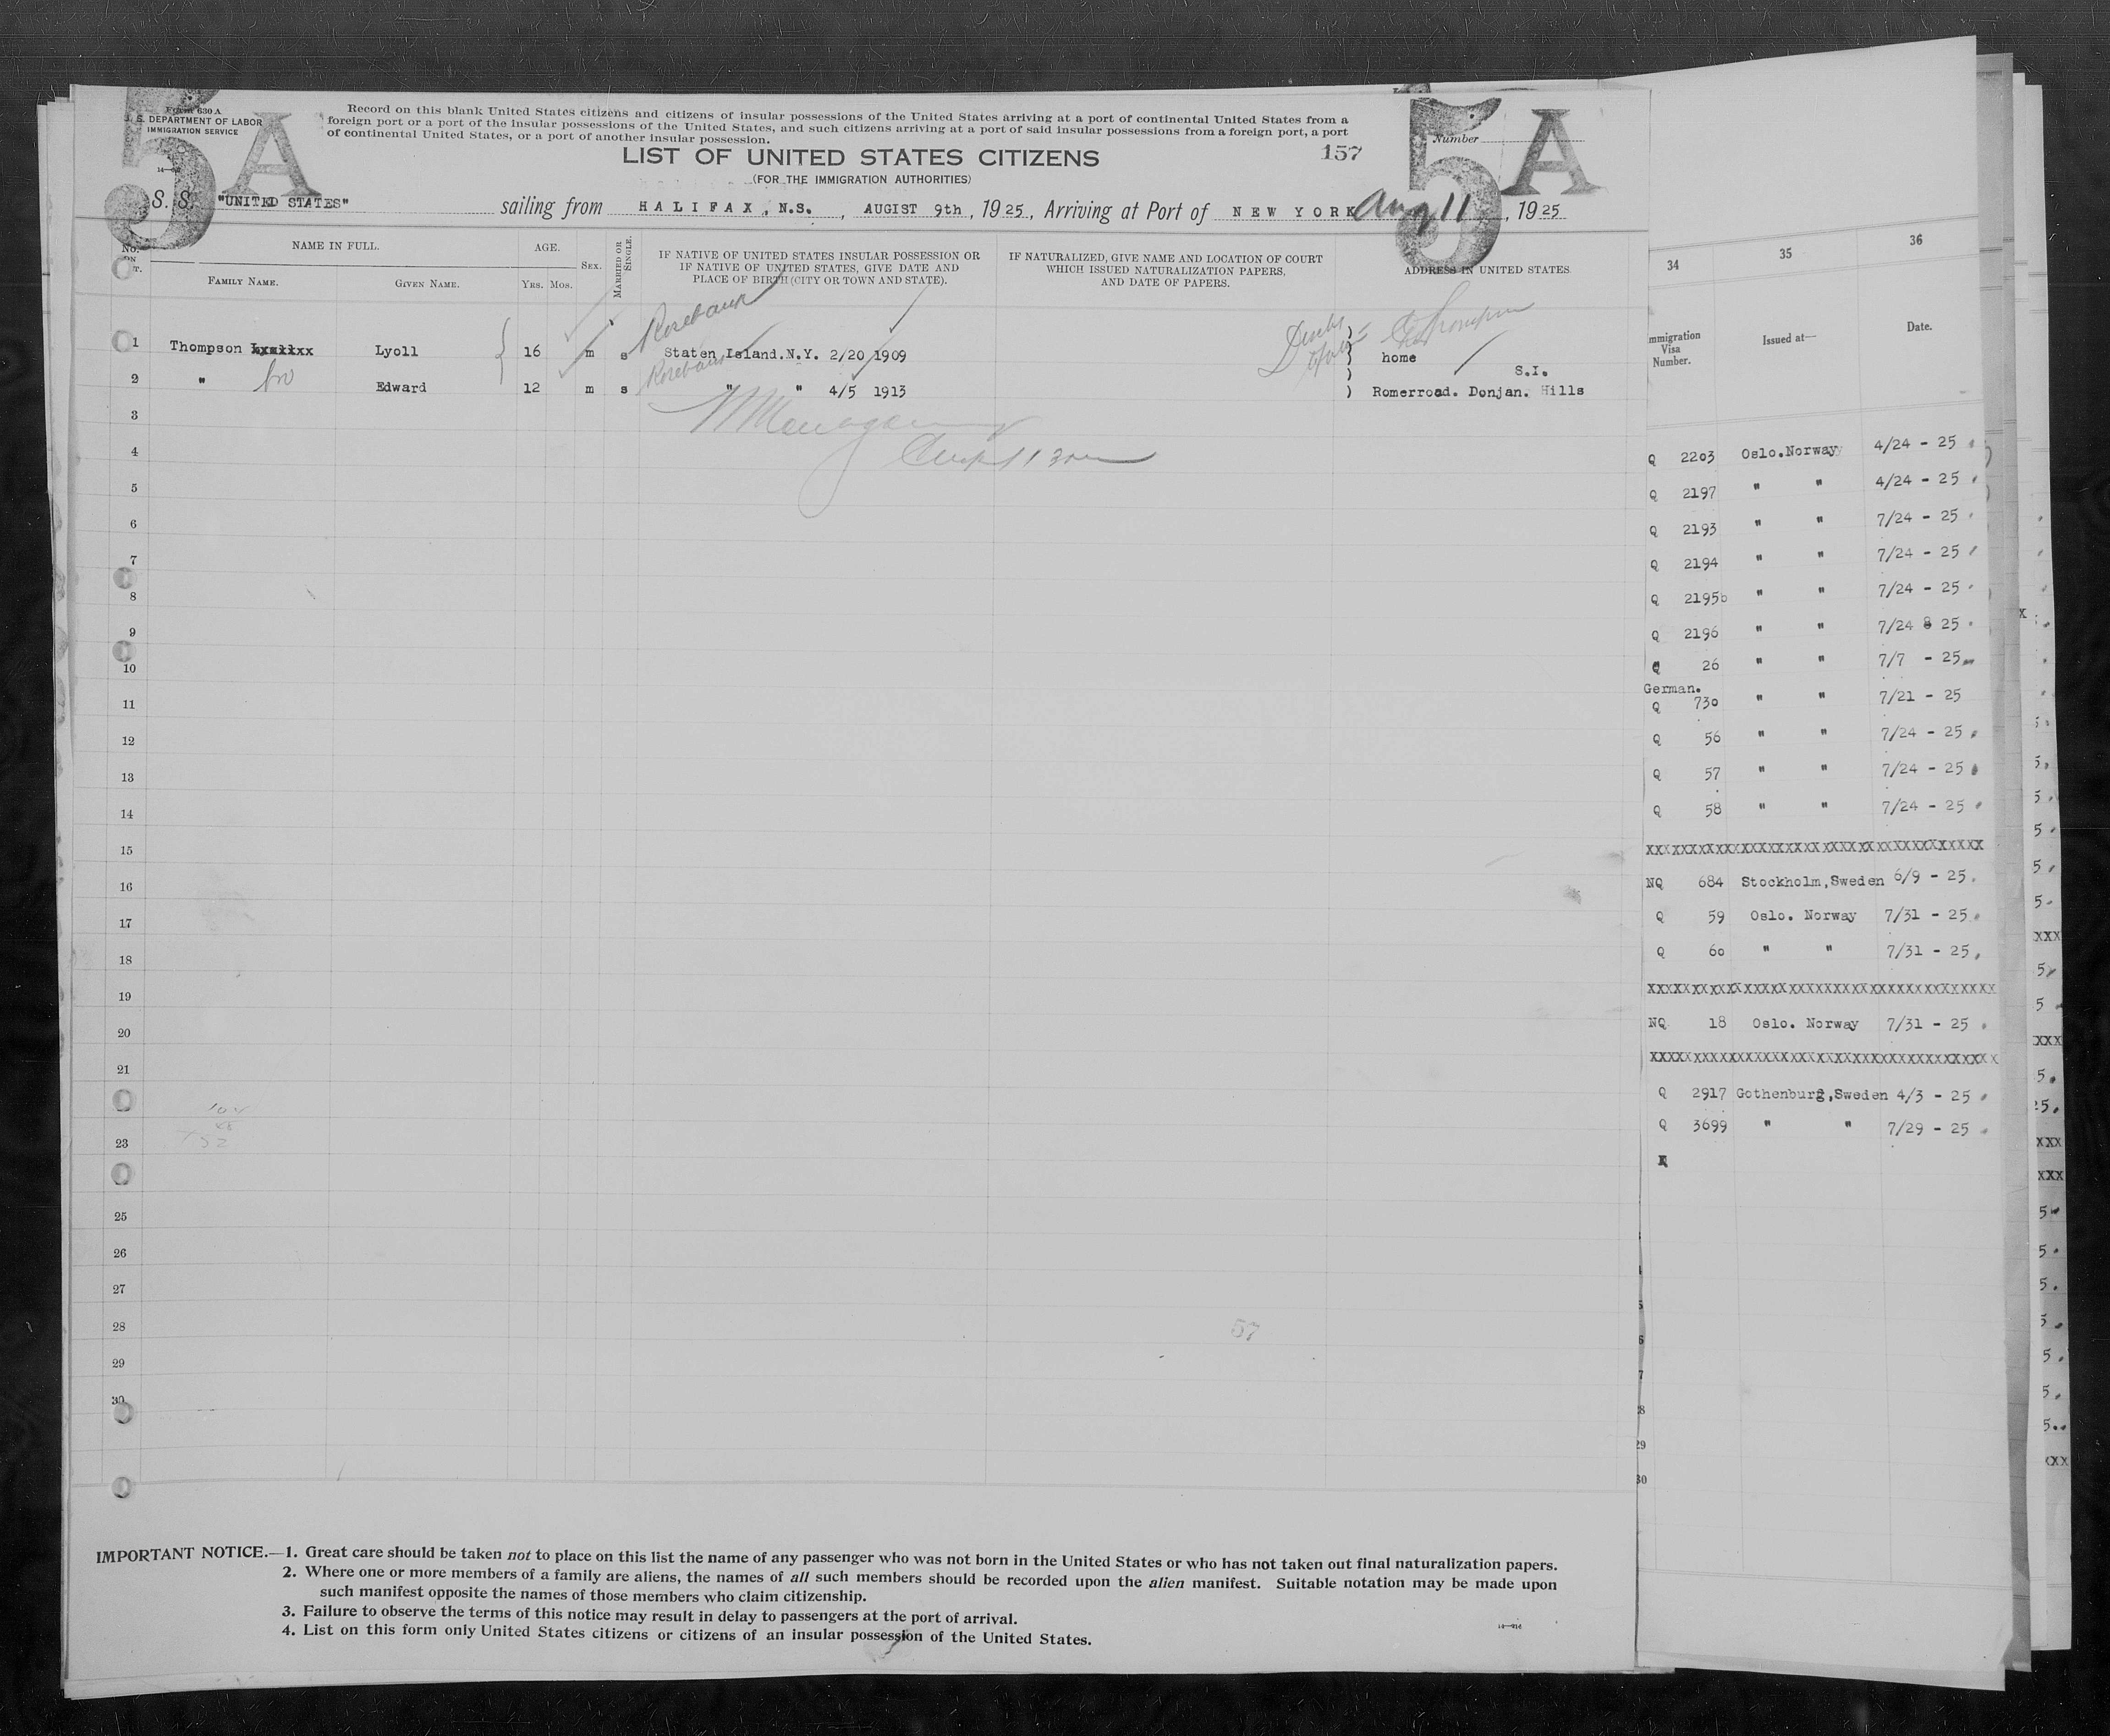 5A
5A
Form 630 A
U. S. DEPARTMENT OF LABOR
IMMIGRATION SERVICE
Record on this blank United States citizens and citizens of insular possessions of the United States arriving at a port of continental United States from a
foreign port or a port of the insular possessions of the United States, and such citizens arriving at a port of said insular possessions from a foreign port, a port
of continental United States, or a port of another insular possession.
Number
LIST OF UNITED STATES CITIZENS
157
(FOR THE IMMIGRATION AUTHORITIES)
S. S. "UNITED STATES" sailing from HALIFAX, N.S., AUGIST 9th, 1925, Arriving at Port of NEW YORK Aug 11, 1925
NAME IN FULL.
AGE.
SEX.
MARRIED OR SINGLE.
IF NATIVE OF UNITED STATES INSULAR POSSESSION OR
IF NATIVE OF UNITED STATES, GIVE DATE AND
PLACE OF BIRTH (CITY OR TOWN AND STATE).
IF NATURALIZED, GIVE NAME AND LOCATION OF COURT
WHICH ISSUED NATURALIZATION PAPERS,
AND DATE OF PAPERS.
ADDRESS IN UNITED STATES.
FAMILY NAME. GIVEN NAME. YRS. MOS.
Rosebank
Thompson
1 Thompson Lyoll 16 m s Staten Island.N.Y. 2/20 1909 home
Rosebank
S.I.
2 " Edward 12 m s " " 4/5 1913 Romerroad. Donjan. Hills
3
4
5
6
7
8
9
10
11
12
13
14
15
16
17
18
19
20
21
23
25
26
27
28 57
29
30
IMPORTANT NOTICE.—1. Great care should be taken not to place on this list the name of any passenger who was not born in the United States or who has not taken out final naturalization papers.
2. Where one or more members of a family are aliens, the names of all such members should be recorded upon the alien manifest. Suitable notation may be made upon
such manifest opposite the names of those members who claim citizenship.
3. Failure to observe the terms of this notice may result in delay to passengers at the port of arrival.
4. List on this form only United States citizens or citizens of an insular possession of the United States.
34 35 36
mmigration
Visa
Number.
Issued at—
Date.
Q 2203 Oslo.Norway 4/24 - 25
Q 2197 " " 4/24 - 25
Q 2193 " " 7/24 - 25
Q 2194 " " 7/24 - 25
Q 2195b " " 7/24 - 25
Q 2196 " " 7/24 8 25
Q 26 " " 7/7 - 25
German.
Q 730 " " 7/21 - 25
Q 56 " " 7/24 - 25
Q 57 " " 7/24 - 25
Q 58 " " 7/24 - 25
NQ 684 Stockholm,Sweden 6/9 - 25
Q 59 Oslo. Norway 7/31 - 25
Q 60 " " 7/31 - 25
NQ 18 Oslo. Norway 7/31 - 25
Q 2917 Gothenburg,Sweden 4/3 - 25
Q 3699 " " 7/29 - 25